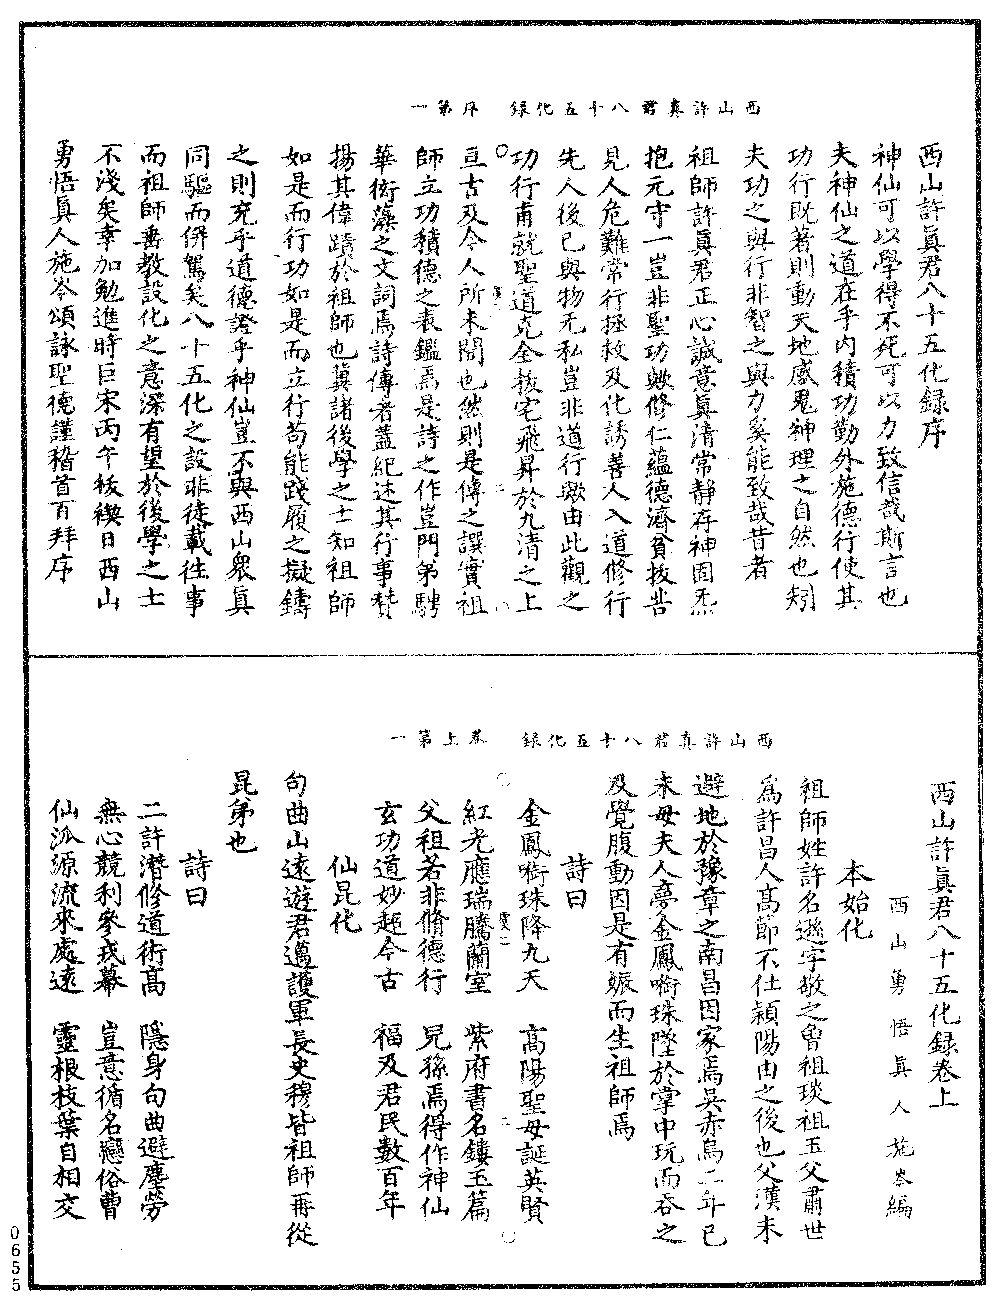 西山許真君八十五化録　序第一
西山許眞君八十五化録序
神仙可以學得不死可以力致信哉斯言也
夫神仙之道在乎内積功勤外施德行使其
功行既著則動天地感鬼神理之自然也矧
夫功之與行非智之與力奚能致哉昔者
祖師許眞君正心誠意眞清常靜存神固炁
抱元守一豈非聖功歟修仁蘊德濟貧拔苦
見人危難常行拯救及化誘善人入道修行
先人後己與物无私豈非道行歟由此觀之
功行甫就聖道克全拔宅飛昇於九清之上
亘古及今人所未聞也然則是傳之譔實祖
師立功積德之表鑑焉是詩之作豈門弟騁
華衒藻之文詞焉詩傳者蓋紀述其行事賛
揚其偉蹟於祖師也冀諸後學之士知祖師
如是而行功如是而立行苟能踐履之擬鑄
之則充乎道德證乎神仙豈不與西山衆眞
同驅而併駕矣八十五化之設非徒載往事
而祖師垂教設化之意深有望於後學之士
不淺矣幸加勉進時巨宋丙午祓禊日西山
勇悟眞人施岑頌詠聖德謹稽首百拜序
西山許真君八十五化録　卷上第一
西山許眞君八十五化録卷上
西山勇悟眞人施岑編
本始化
祖師姓許名遜字敬之曽祖琰祖玉父肅世
爲許昌人髙節不仕潁陽由之後也父漢末
避地於豫章之南昌因家焉吳赤烏二年己
未母夫人夢金鳳啣珠墜於掌中玩而吞之
及覺腹動因是有娠而生祖師焉
詩曰
金鳳啣珠降九天　髙陽聖母誕英賢
紅光應瑞騰蘭室　紫府書名鏤玉篇
父祖若非脩德行　兒孫焉得作神仙
玄功道妙超今古　福及君民數百年
仙昆化
句曲山遠遊君邁護軍長史穆皆祖師再從
昆弟也
詩曰
二許潛修道術髙　隱身句曲避塵勞
無心競利參戎幕　豈意循名戀俗曹
仙泒源流來處遠　靈根枝葉自相交
0655